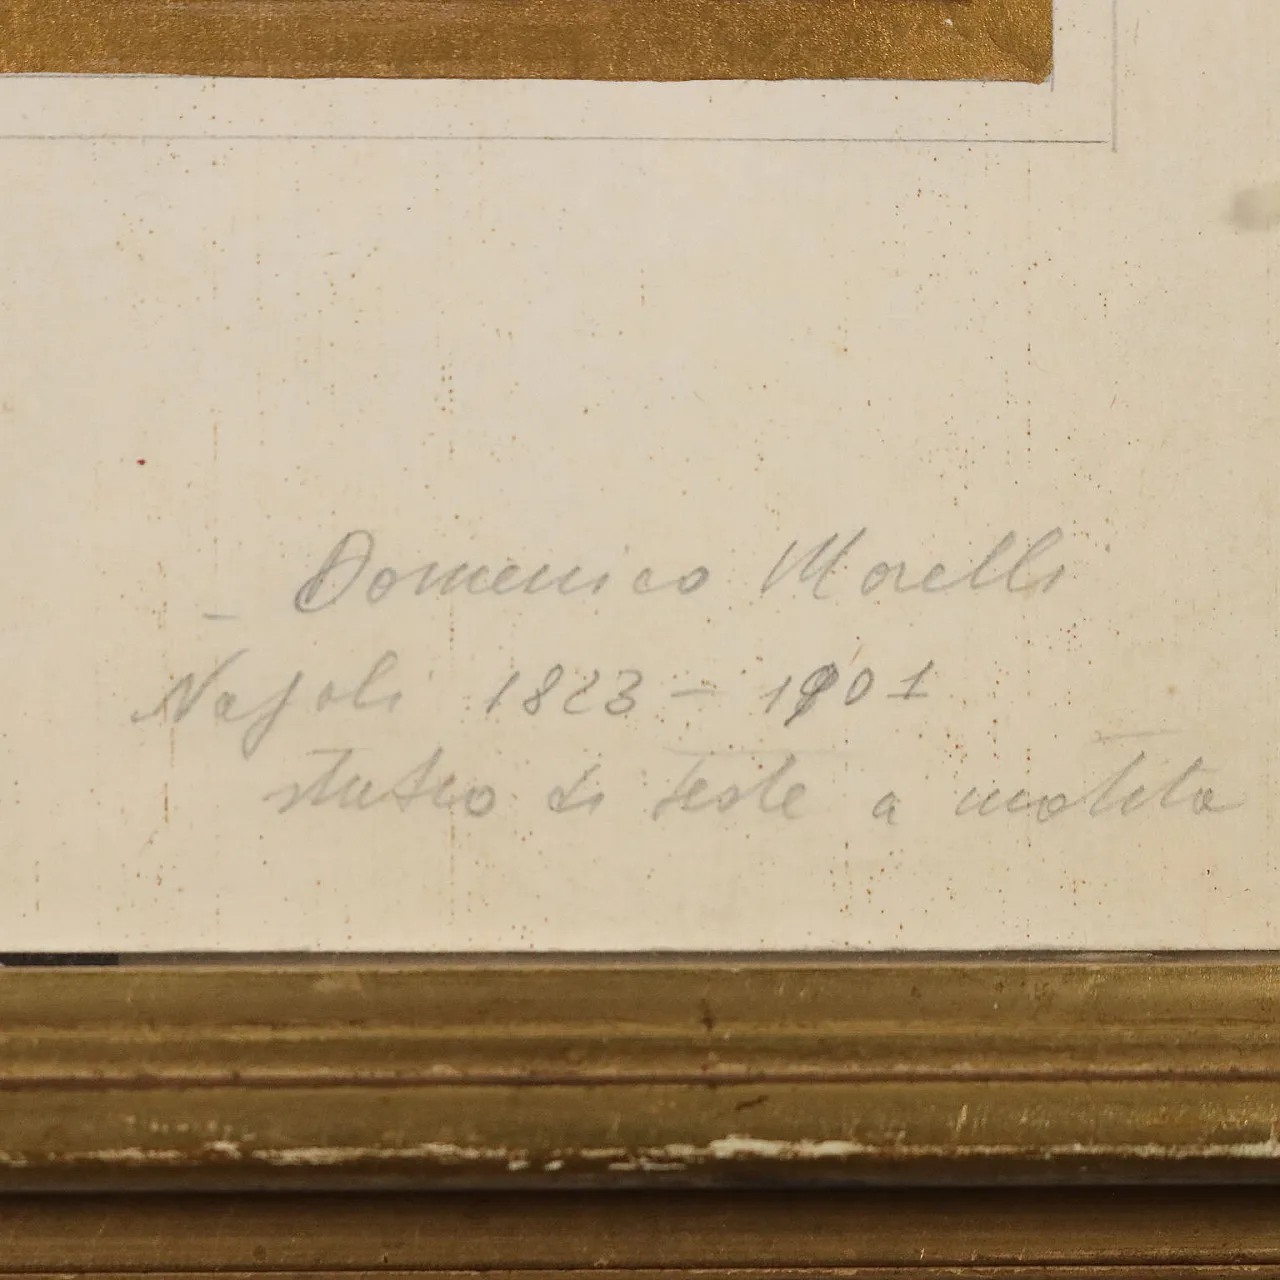 Domenico Morelli
Napoli 1823 - 1901
studio di teste a matita